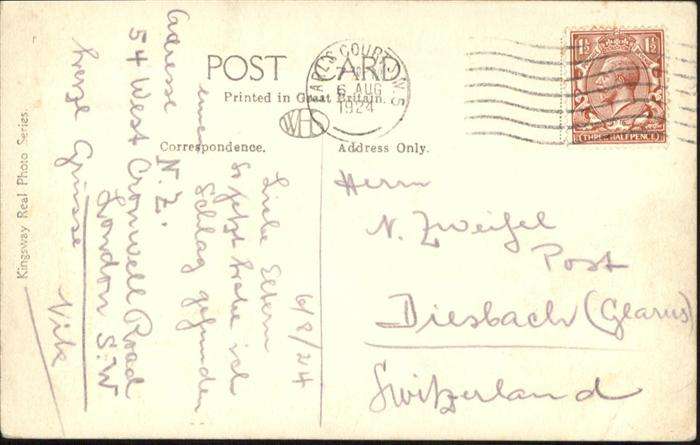 POST CARD
Printed in Great Britain.
WHS
Correspondence.
Address Only.
Kingsway Real Photo Series
EARLS COURT. S.W.5
6 AUG
1924
1½ 1½
THREE HALFPENCE
6/8/24
Liebe Eltern
jetzt habe ich
Schlag gefunden
N. Z.
adresse
54 West Cromwell Road
London S.W
Grüsse
Herrn
N. Zweifel
Post
Diesbach (Glarus)
Switzerland